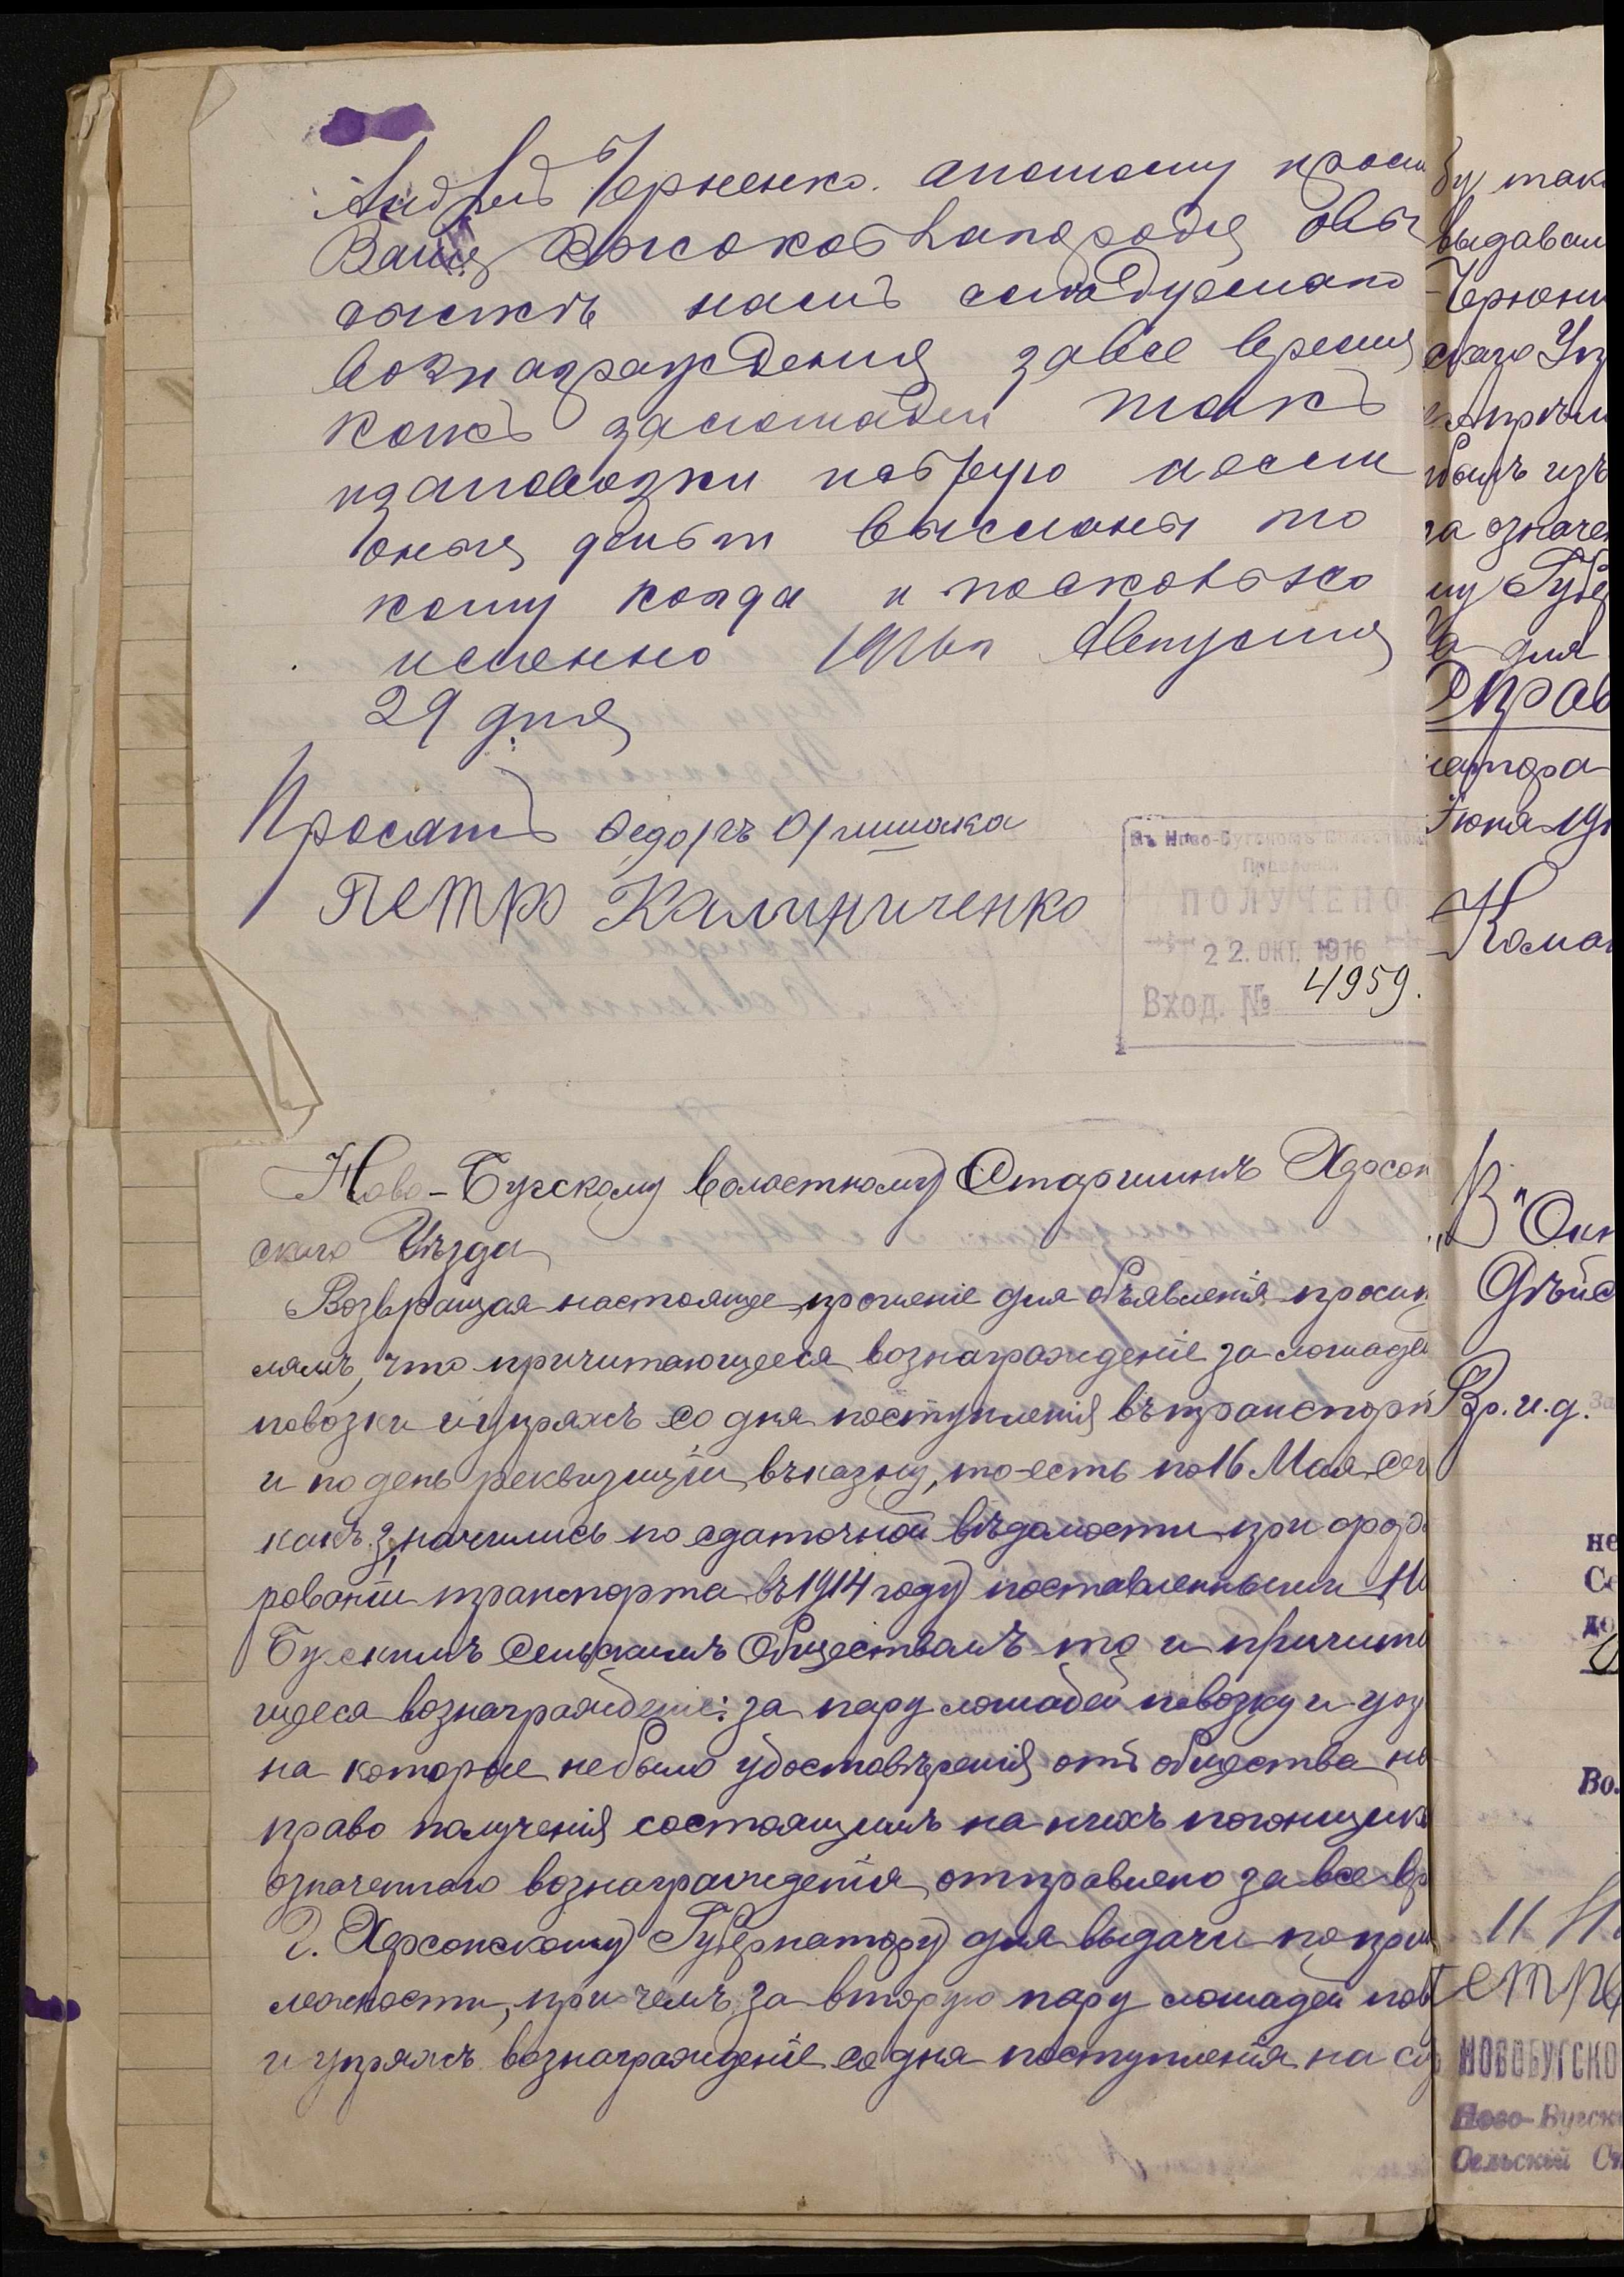 Андрей Черненко. апотому проси
Ваше Высокоблагородия овы
сылкѣ намъ следуемаго
вознаграждения завсе время
какъ залошадей такъ
изаповозки которую аесли
оныя деньги высланы то
кому когда и посколько
именно 1916г Августа
29 дня
Просятъ Федоръ
ПЕТРО Калиниченко
Въ Ново-Бугскомъ Волостномъ
Правленіи
ПОЛУЧЕНО
22. ОКТ. 1916
Вход. № 4959.
Ново-Бугскому волостному Старшинѣ Херсон
скаго Уѣзда
Возвращая настоящее прошеніе для объявленія проси
лямъ, что причитающееся вознагражденіе за лошадей
повозки и упряжь со дня поступленія въ транспортъ
и по день реквизиціи въ казну, то-есть по 16 Мая сег
какъ значились по сдаточной вѣдомости при форм
рованіи транспорта въ 1914 году поставленными Но
Бугскимъ Сельскимъ Обществомъ то и причита
щееся вознагражденіе: за пару лошадей повозку и упр
на которые небыло удостовѣренія отъ общества на
право полученія состоящимъ на нихъ погонщика
означеннаго вознагражденія отправлено за все вр
Г. Херсонскому Губернатору для выдачи по прин
лежности, при чемъ за вторую пару лошадей пов
и упряжь вознагражденіе со дня поступленія на сл
бу так
выдавал
Черненк
скаго Уѣз
былъ изъ
за означен
му Губер
для
Справ
натора
Іюня 191
Коман
В "Окт
Дѣйс
Вр. и. д. За
не
Со
до
Во.
11
Петро
НОВОБУГСКО
Ново-Бугск
Сельскій Ст